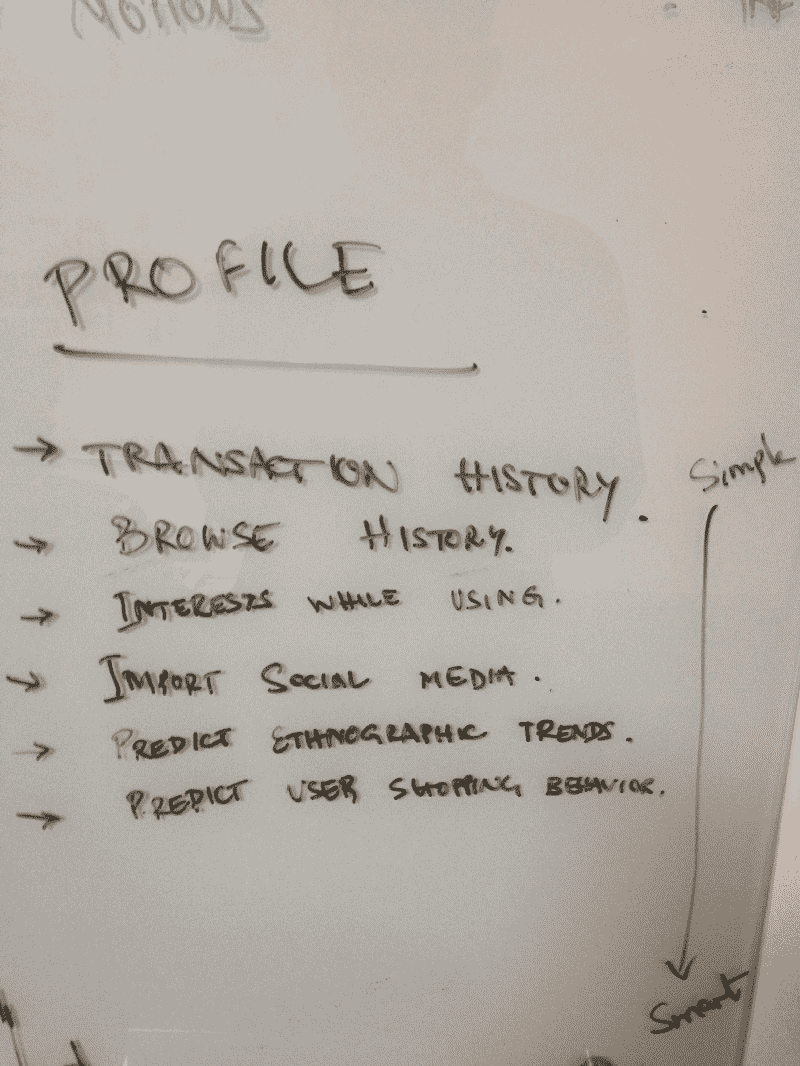 MOTIONS
PROFILE
→ TRANSACTION HISTORY.
→ BROWSE HISTORY.
→ INTERESTS WHILE USING.
→ IMPORT SOCIAL MEDIA.
→ PREDICT ETHNOGRAPHIC TRENDS.
→ PREDICT USER SHOPPING BEHAVIOR.
Simple
Smart